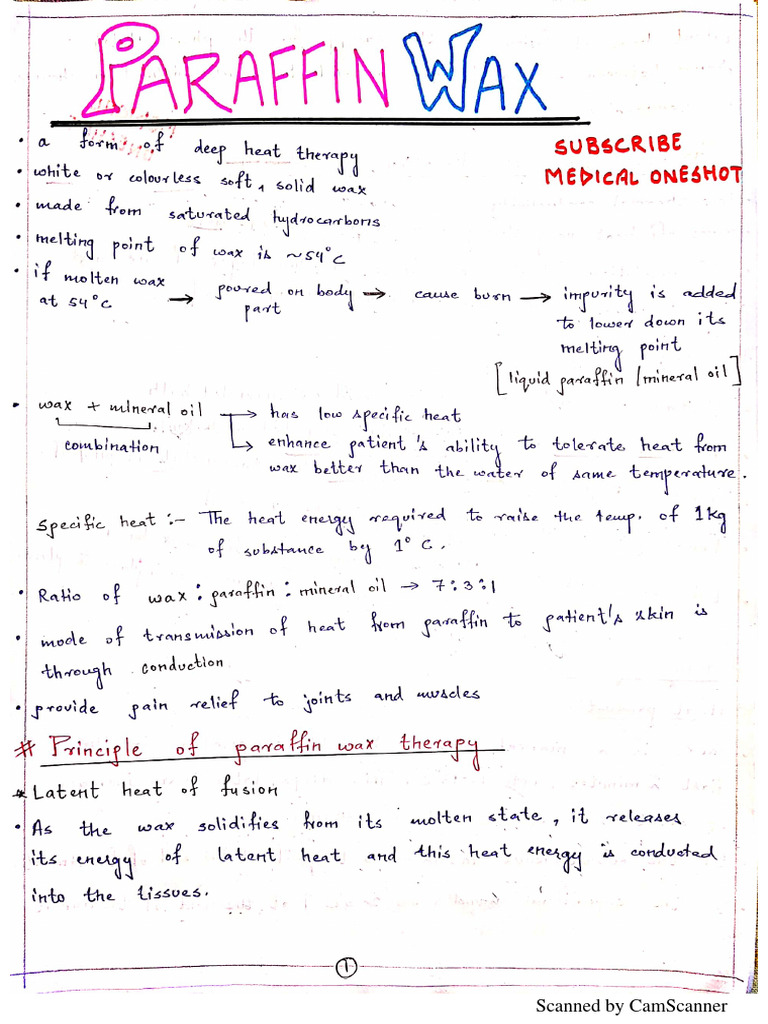 PARAFFIN WAX
SUBSCRIBE
MEDICAL ONESHOT
• a form of deep heat therapy
• white or colourless soft, solid wax
• made from saturated hydrocarbons
• melting point of wax is ~54°C
• if molten wax at 54°C → poured on body part → cause burn → impurity is added
to lower down its
melting point
[liquid paraffin / mineral oil]
• wax + mineral oil → has low specific heat
combination
↳ enhance patient's ability to tolerate heat from
wax better than the water of same temperature.
Specific heat :- The heat energy required to raise the temp. of 1kg
of substance by 1°C.
• Ratio of wax : paraffin : mineral oil → 7:3:1
• mode of transmission of heat from paraffin to patient's skin is
through conduction
• provide pain relief to joints and muscles
# Principle of paraffin wax therapy
* Latent heat of fusion
• As the wax solidifies from its molten state, it releases
its energy of latent heat and this heat energy is conducted
into the tissues.
1
Scanned by CamScanner